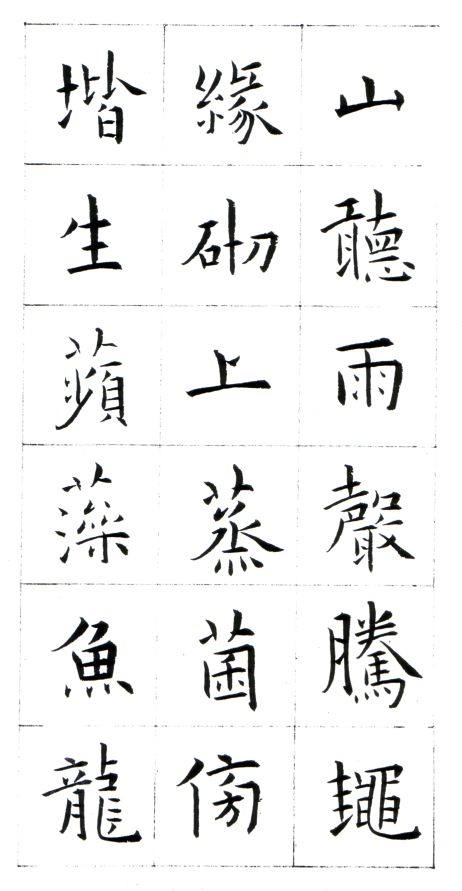 山聽雨聲騰蠅
緣砌上蒸菌傍
堦生蘋藻魚龍